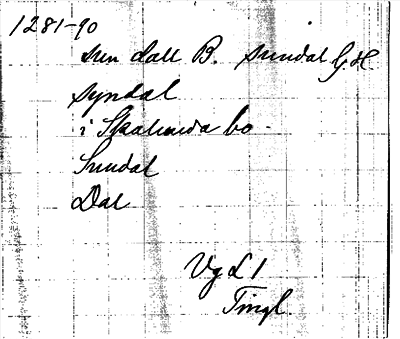 1281-90
sun dall B. sundal G. H.
syndal
i Skalunda bo-
Sundal
Dal
Vg L 1
Tingl